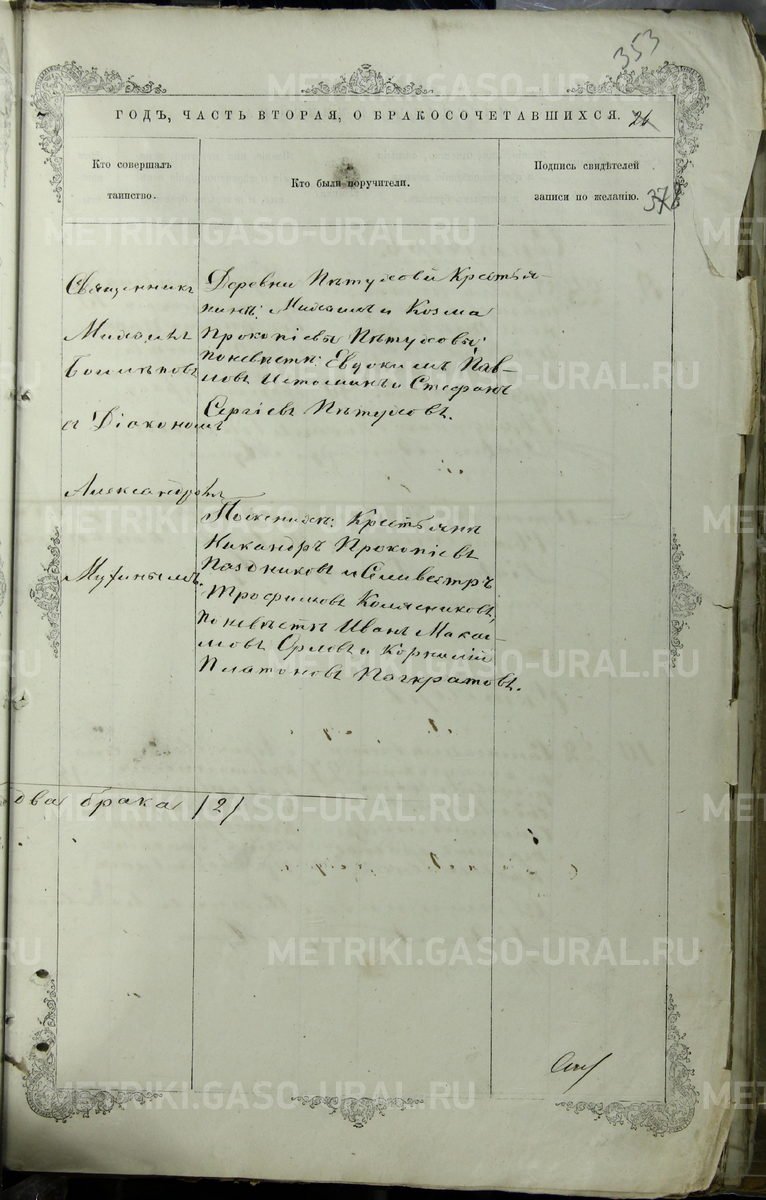 353
ГОДЪ, ЧАСТЬ ВТОРАЯ, О БРАКОСОЧЕТАВШИХСЯ.
Кто совершалъ
таинство.
Кто были поручители.
Подпись свидѣтелей
записи по желанію.
Священникъ
Михаилъ
а Діакономъ
Александромъ
Деревни Пѣтуховой Крестья-
нинъ: Михаилъ и Козма
Прокопіевы Пѣтуховы;
по невѣстѣ: Евдокимъ Пав-
ловъ Истоминъ и Стефанъ
Сергіевъ Пѣтуховъ.
По женихѣ: Крестьяне
Никандръ Прокопіевъ
Паздниковъ и Селивестръ
Трофимовъ Колясниковъ,
по невѣстѣ Иванъ Макси-
мовъ Орловъ и Корнилій
Платоновъ Панкратовъ.
два брака /2/
METRIKI.GASO-URAL.RU